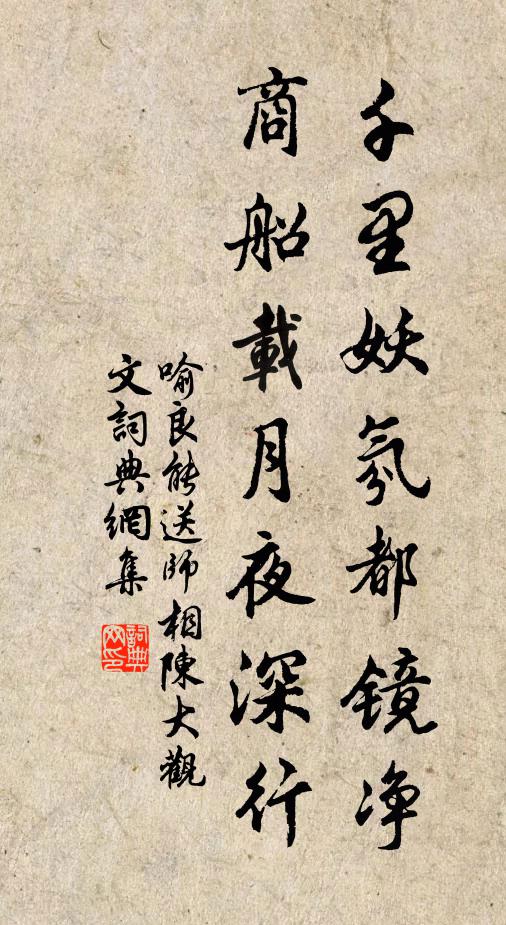 千里妖氛都镜净
商船載月夜深行
喻良能送師相陳大觀
文詞典網集
詞典网印